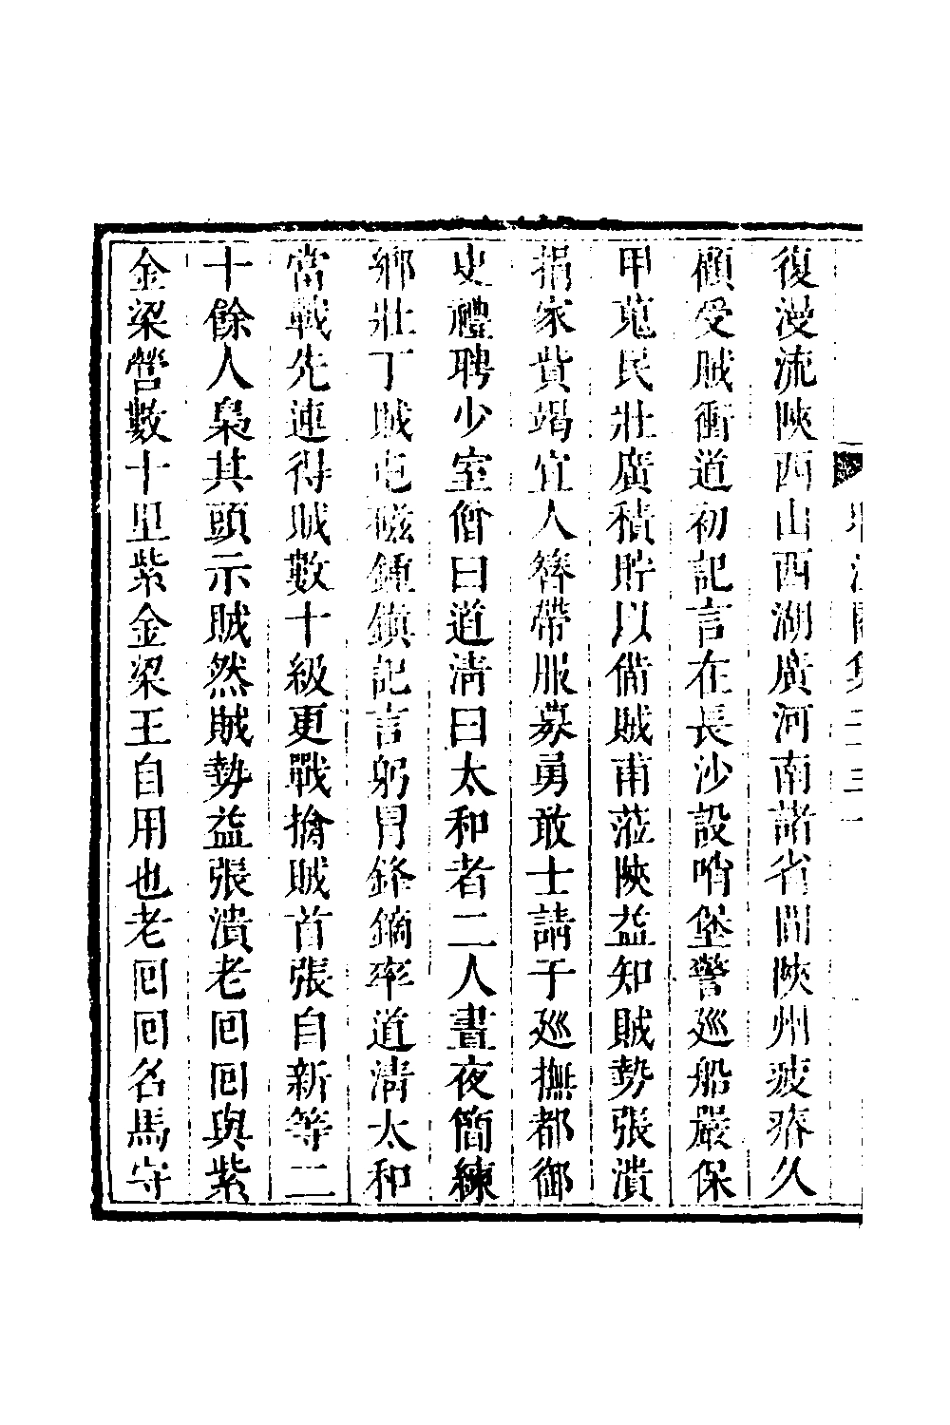 復漫流陝西山西湖廣河南諸省間陝州疲瘵久
顧受賊衝道初記言在長沙設哨堡警巡船嚴保
甲蒐民壯廣積貯以備賊甫蒞陝益知賊勢張潰
捐家貲竭宜人簪帶服募勇敢士請于巡撫都御
史禮聘少室僧曰道淸曰太和者二人晝夜簡練
鄉壯丁賊屯磁鍾鎮記言躬冒鋒鏑率道淸太和
當戰先連得賊數十級更戰擒賊首張自新等二
十餘人梟其頭示賊然賊勢益張潰老回回與紫
金梁營數十里紫金梁王自用也老回回名馬守